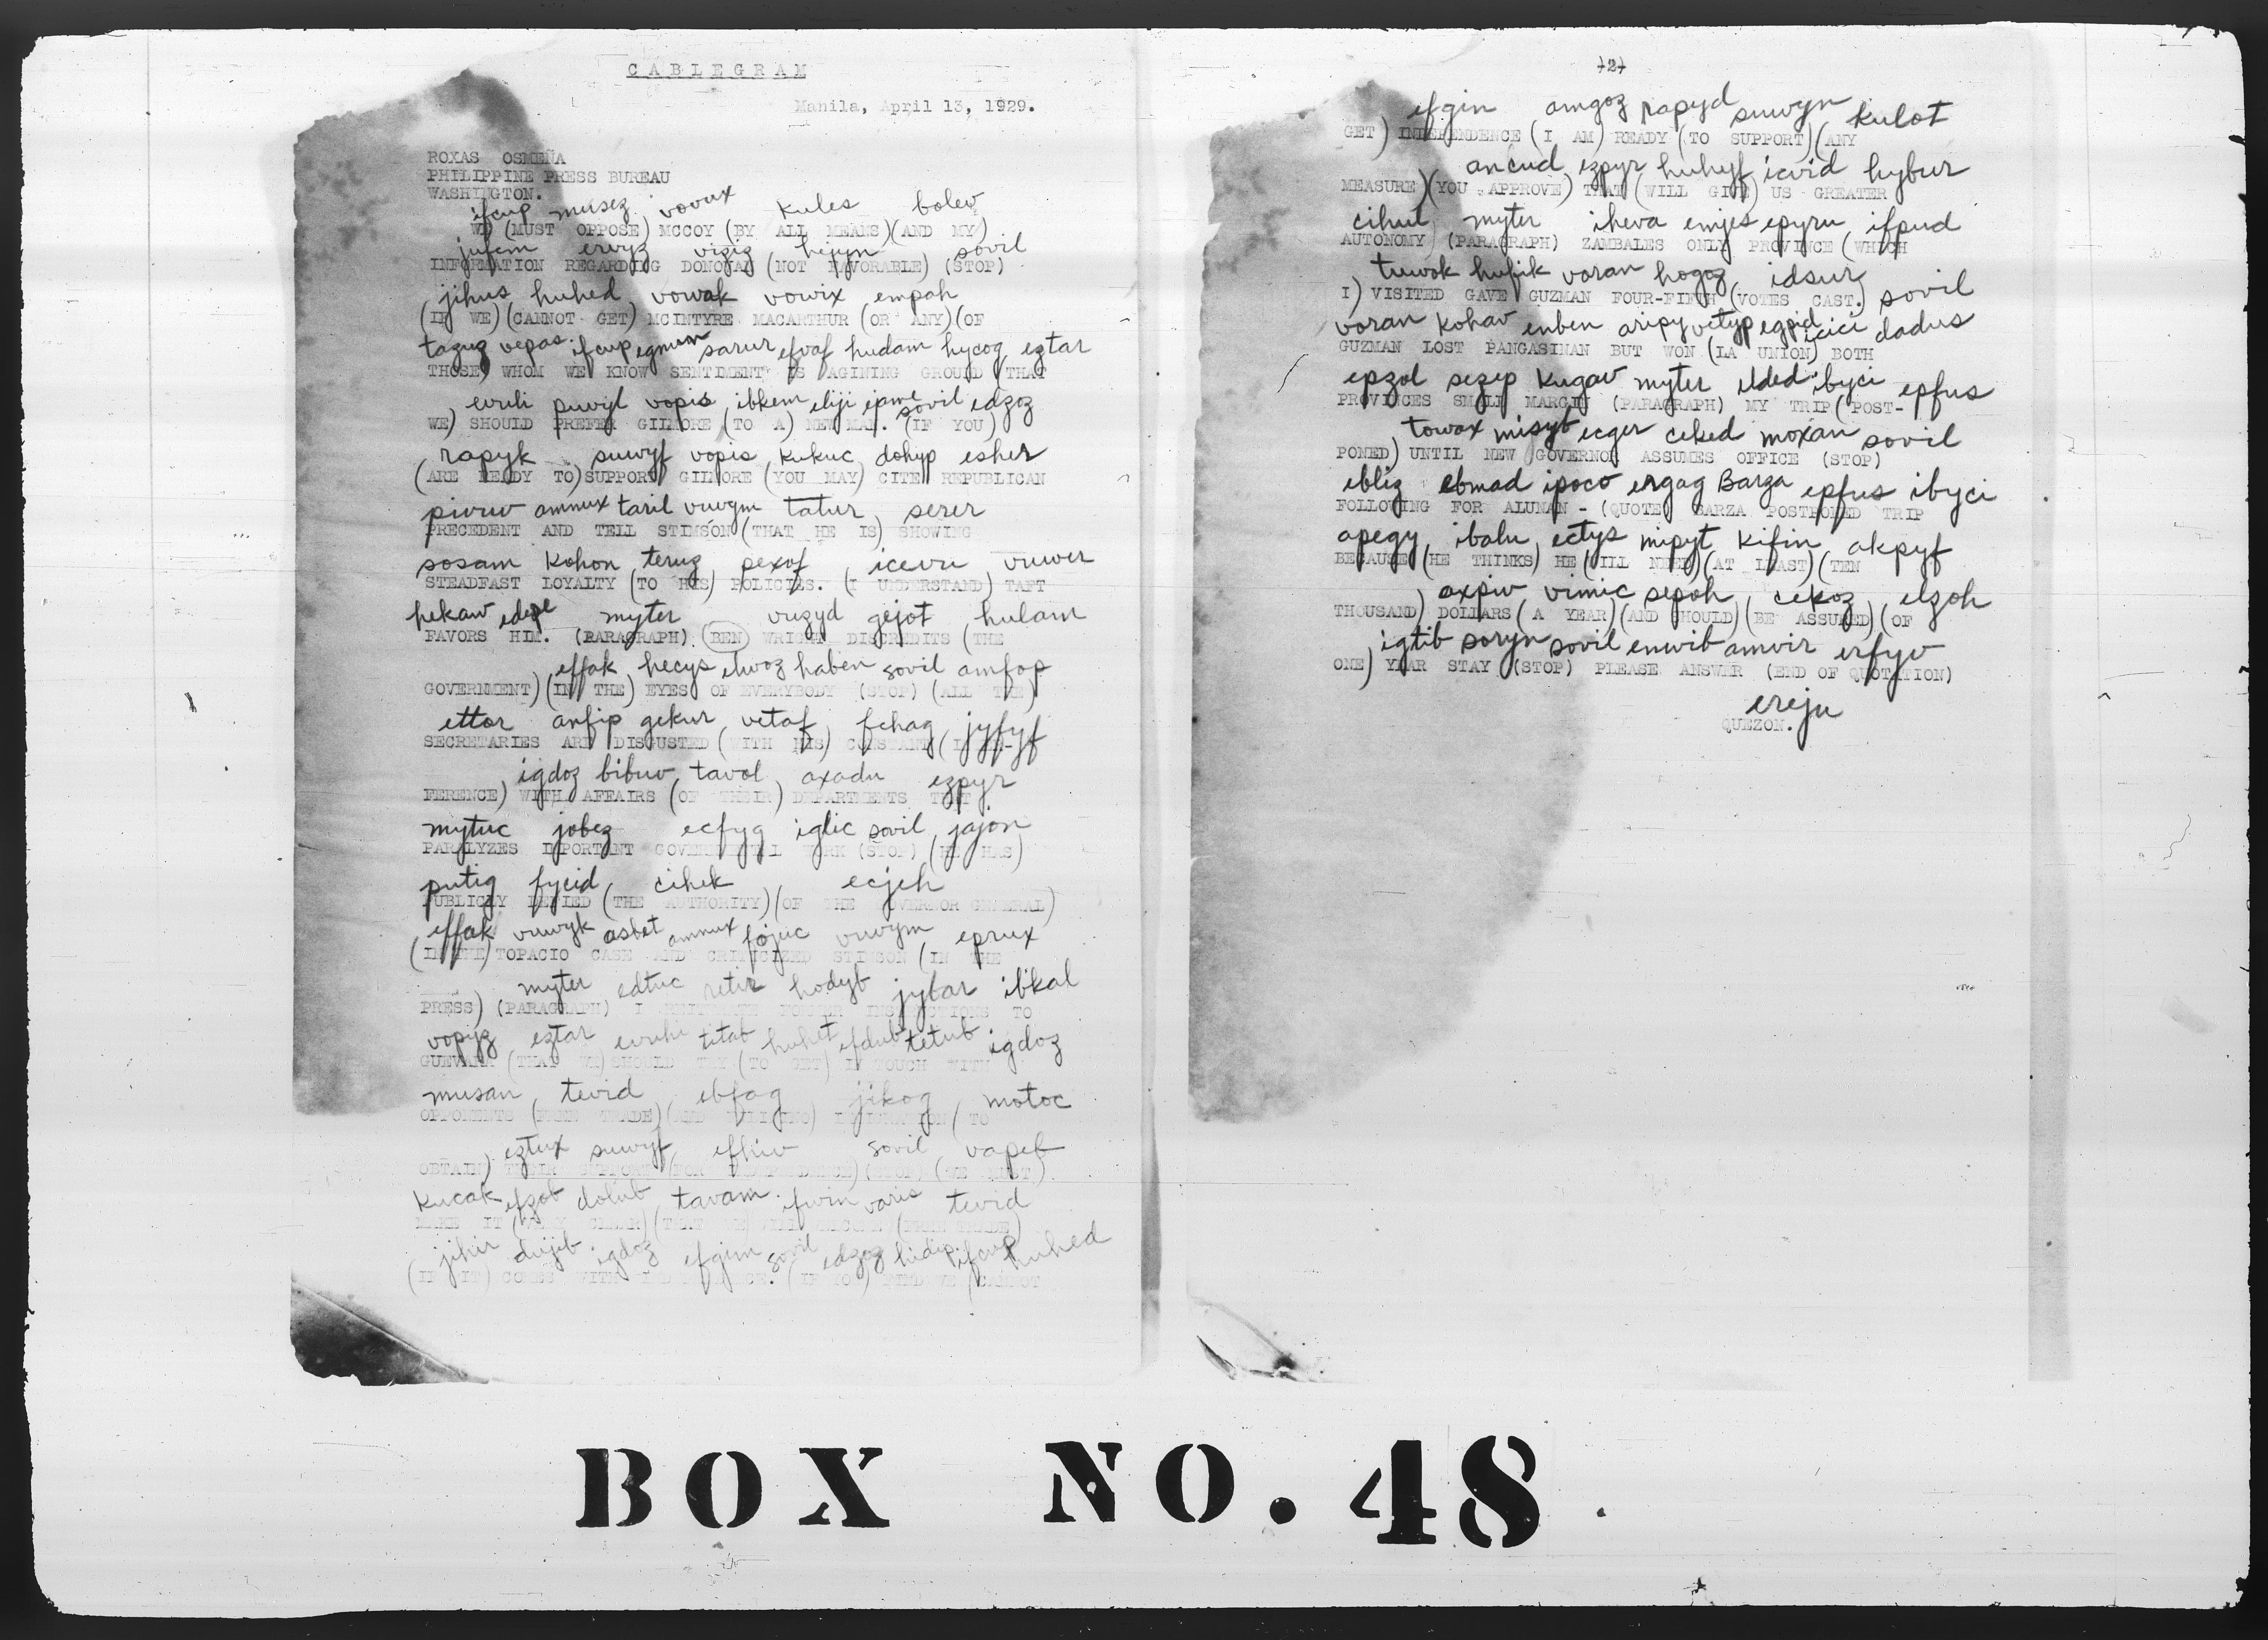 CABLEGRAM
Manila, April 13, 1929.
ROXAS OSMEÑA
PHILIPPINE PRESS BUREAU
WASHINGTON.
ifcup musez vovux kules bolev
WE) (MUST OPPOSE) MCCOY (BY ALL MEANS)(AND MY)
jufem ervyz viziz hejyn sovil
INFORMATION REGARDING DONOVAN (NOT FAVORABLE) (STOP)
jihus huhed vowak vowix empah
(IF WE) (CANNOT GET) MCINTYRE MACARTHUR (OR ANY)(OF
tazuz vepas ifcup egmum sarur efvaf hudam hycog eztar
THOSE) WHOM WE KNOW SENTIMENT IS AGINING GROUND THAT
evuli puwyl vopis ibkem eliji epme sovil edzoz
WE) SHOULD PREFER GILMORE (TO A) NEW MAN. (IF YOU)
rapyk suwyf vopis kukuc dohyp esher
(ARE READY TO)SUPPORT GILMORE (YOU MAY) CITE REPUBLICAN
pivuv ammux taril vuvym tatur serer
PRECEDENT AND TELL STIMSON (THAT HE IS) SHOWING
sosam kohon teruz pexof icevu vuwer
STEADFAST LOYALTY (TO HIS) POLICIES. (I UNDERSTAND) TAFT
hekaw edepe myter vuzyd gejot hulam
FAVORS HIM. (PARAGRAPH) (BEN) WRIGHT DISCREDITS (THE
effak hecys elwoz haben sovil amfop
GOVERNMENT) (IN THE) EYES OF EVERYBODY (STOP) (ALL THE)
ettor anfip gekur vetaf fehag jyfyf
SECRETARIES ARE DISGUSTED (WITH HIS) CONSTANT (
igdoz bibuv tavol axadu ezpyr
FERENCE) WITH AFFAIRS (OF THEIR) DEPARTMENTS THAT
mytuc jobez ecfyg iglic sovil jajon
PARALYZES IMPORTANT GOVERNMENTAL WORK (STOP) (HE HAS)
putig fycid cihek ecjeh
PUBLICLY DENIED (THE AUTHORITY)(OF THE GOVERNOR GENERAL)
effak vuwyk asbet ammux fojuc vuvym eprux
(IN THE) TOPACIO CASE AND CRITICIZED STIMSON (IN THE
myter edtuc retir hodyb jybar ibkal
PRESS) (PARAGRAPH) I INSTRUCTIONS TO
vopyz eztar evuhi titab huhet efdub tetub igdoz
GUEVARA (THAT WE) SHOULD TRY (TO GET) IN TOUCH WITH
musan tevid ebfag jikog motoc
OPPONENTS (FREE TRADE) (AND FILIPINO) IMMIGRATION (TO
eztux suwyf efhiv sovil vapeb
OBTAIN) THEIR SUPPORT (FOR INDEPENDENCE) (STOP) (WE MUST)
kucak efzob dolub tavam ifwin varis tevid
MAKE IT (VERY CLEAR) (THAT WE) WILL WELCOME (FREE TRADE)
jihir dujib igdoz efgim sovil edzoz hidip ifcup huhed
(IF IT) COMES WITH INDEPENDENCE. (IF YOU) FIND WE (CANNOT
(2)
efgin amgoz rapyd suwyn kulot
GET) INDEPENDENCE (I AM) READY (TO SUPPORT)(ANY
ancud ezpyr huhyf icvid hybur
MEASURE)(YOU APPROVE) THAT (WILL GIVE) US GREATER
cihul myter iheva emjes epyru ifpud
AUTONOMY (PARAGRAPH) ZAMBALES ONLY PROVINCE (WHICH
tuwok hufik voran hogoz idsur
I) VISITED GAVE GUZMAN FOUR-FIFTH (VOTES CAST.) sovil
voran kohav enben aripy vetyp egpid icici dadus
GUZMAN LOST PANGASINAN BUT WON (LA UNION) BOTH
epzol sezep kugav myter elded ibyci epfus
PROVINCES SMALL MARGIN (PARAGRAPH) MY TRIP (POST-
towax misyb ecger ceked moxan sovil
PONED) UNTIL NEW GOVERNOR ASSUMES OFFICE (STOP)
ebliz ebmad ipoco ergag Barza epfus ibyci
FOLLOWING FOR ALUNAN - (QUOTE) BARZA POSTPONED TRIP
apegy ibalu ectys mipyt kifin akpyf
BECAUSE (HE THINKS) HE (WILL NEED)(AT LEAST)(TEN
axpiv vimic sepoh cekoz elzoh
THOUSAND) DOLLARS (A YEAR)(AND SHOULD)(BE ASSURED)(OF
igtib soryn sovil enwib amvir erfyv
ONE) YEAR STAY (STOP) PLEASE ANSWER (END OF QUOTATION)
ereju
QUEZON.
BOX NO. 48